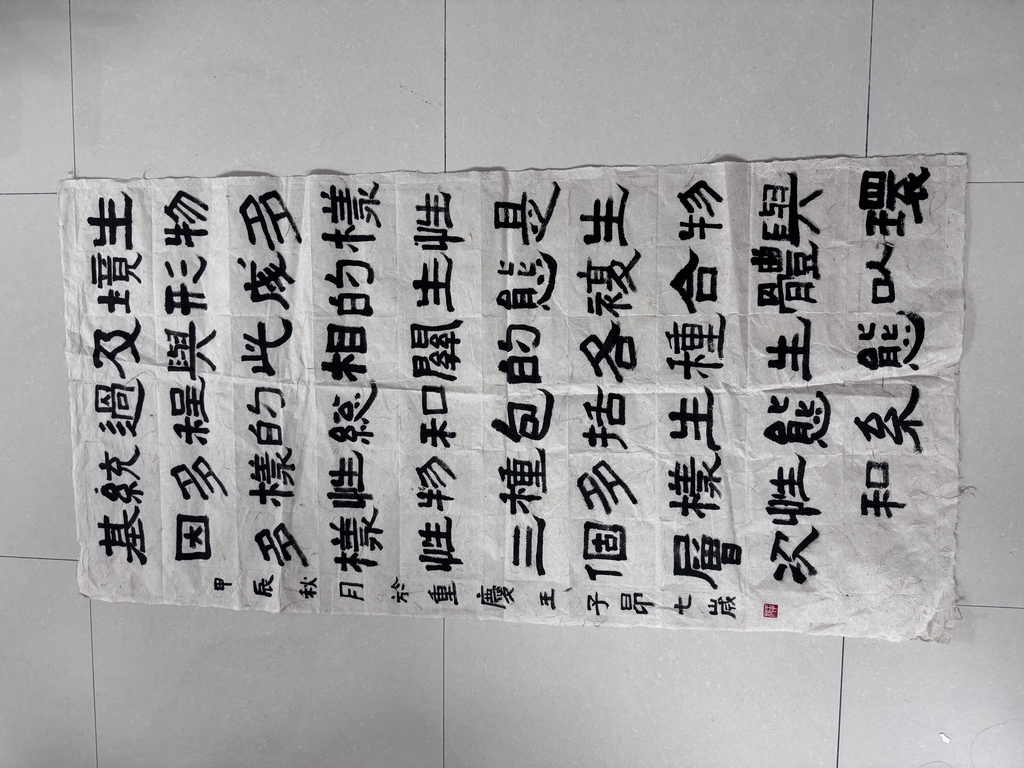 生物多樣性是生物與環
境形成的生態複合體以
及與此相關的各種生態
過程的總和包括生態系
統多樣性物種多樣性和
基因多樣性三個層次
甲辰秋月於重慶王子昂七歲